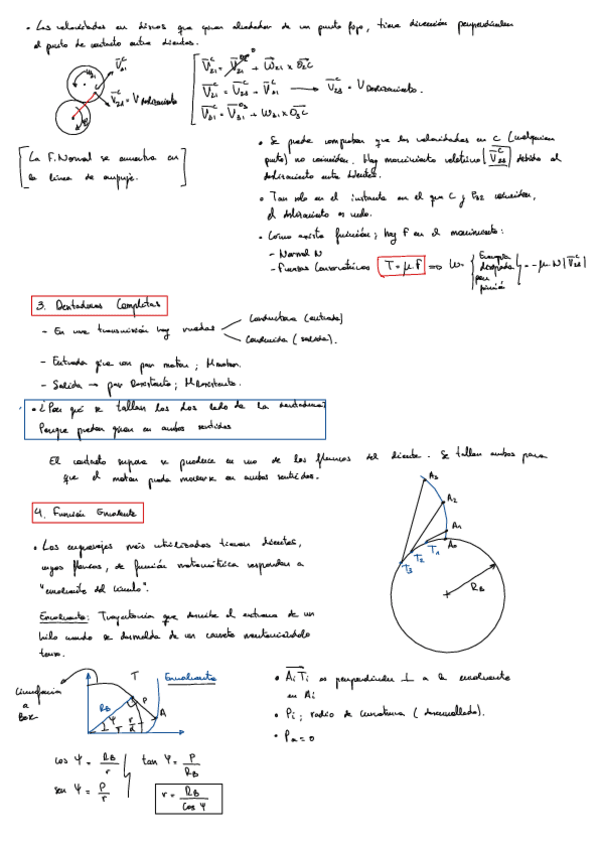 • Las velocidades en discos que giran alrededor de un punto fijo, tiene dirección perpendicular
al punto de contacto entre dientes.
V⃗21^C
V⃗23^C = V Deslizamiento
V⃗21^C = V⃗21^O2 + W⃗21 x O2C
V⃗23^C = V⃗21^C - V⃗31^C → V⃗23^C = V Deslizamiento.
V⃗31^C = V⃗31^O3 + W31 x O3C
[La F. Normal se encuentra en
la línea de empuje.]
• Se puede comprobar que las velocidades en C (cualquier
punto) no coinciden. Hay movimiento relativo |V⃗23^C| debido al
deslizamiento entre dientes.
• Tan solo en el instante en el que C y P32 coinciden,
el deslizamiento es nulo.
• Como existe fricción; hay F en el movimiento:
- Normal N
- Fuerzas T = μF ⇒ W = {Energía disipada por fricción} = -μ·N|V⃗23^C|
3. Dentaduras Completas
- En una transmisión hay ruedas
Conductora (entrada)
Conducida (salida).
- Entrada gira con par motor; Mmotor.
- Salida → par Resistente; MResistente.
• ¿Por qué se tallan los dos lados de la dentadura?
Porque puedan girar en ambos sentidos
El contacto siempre se produce en uno de los flancos del diente. Se tallan ambos para
que el motor pueda moverse en ambos sentidos.
4. Función Envolvente
• Los engranajes más utilizados tienen dientes,
cuyos flancos, de función matemática responden a
"envolvente del círculo".
Envolvente: Trayectoria que describe el extremo de un
hilo cuando se desenrolla de un carrete manteniéndolo
tenso.
A3
A2
A1
A0
T1
T2
T3
RB
Circunferencia
Base
T
Envolvente
RB
P
A
Ψ
r
• A⃗iTi es perpendicular ⊥ a la envolvente
en Ai
• Pi; radio de curvatura (desarrollado).
• Pa = 0
cos Ψ = RB/r
tan Ψ = P/RB
sen Ψ = P/r
r = RB/cos Ψ